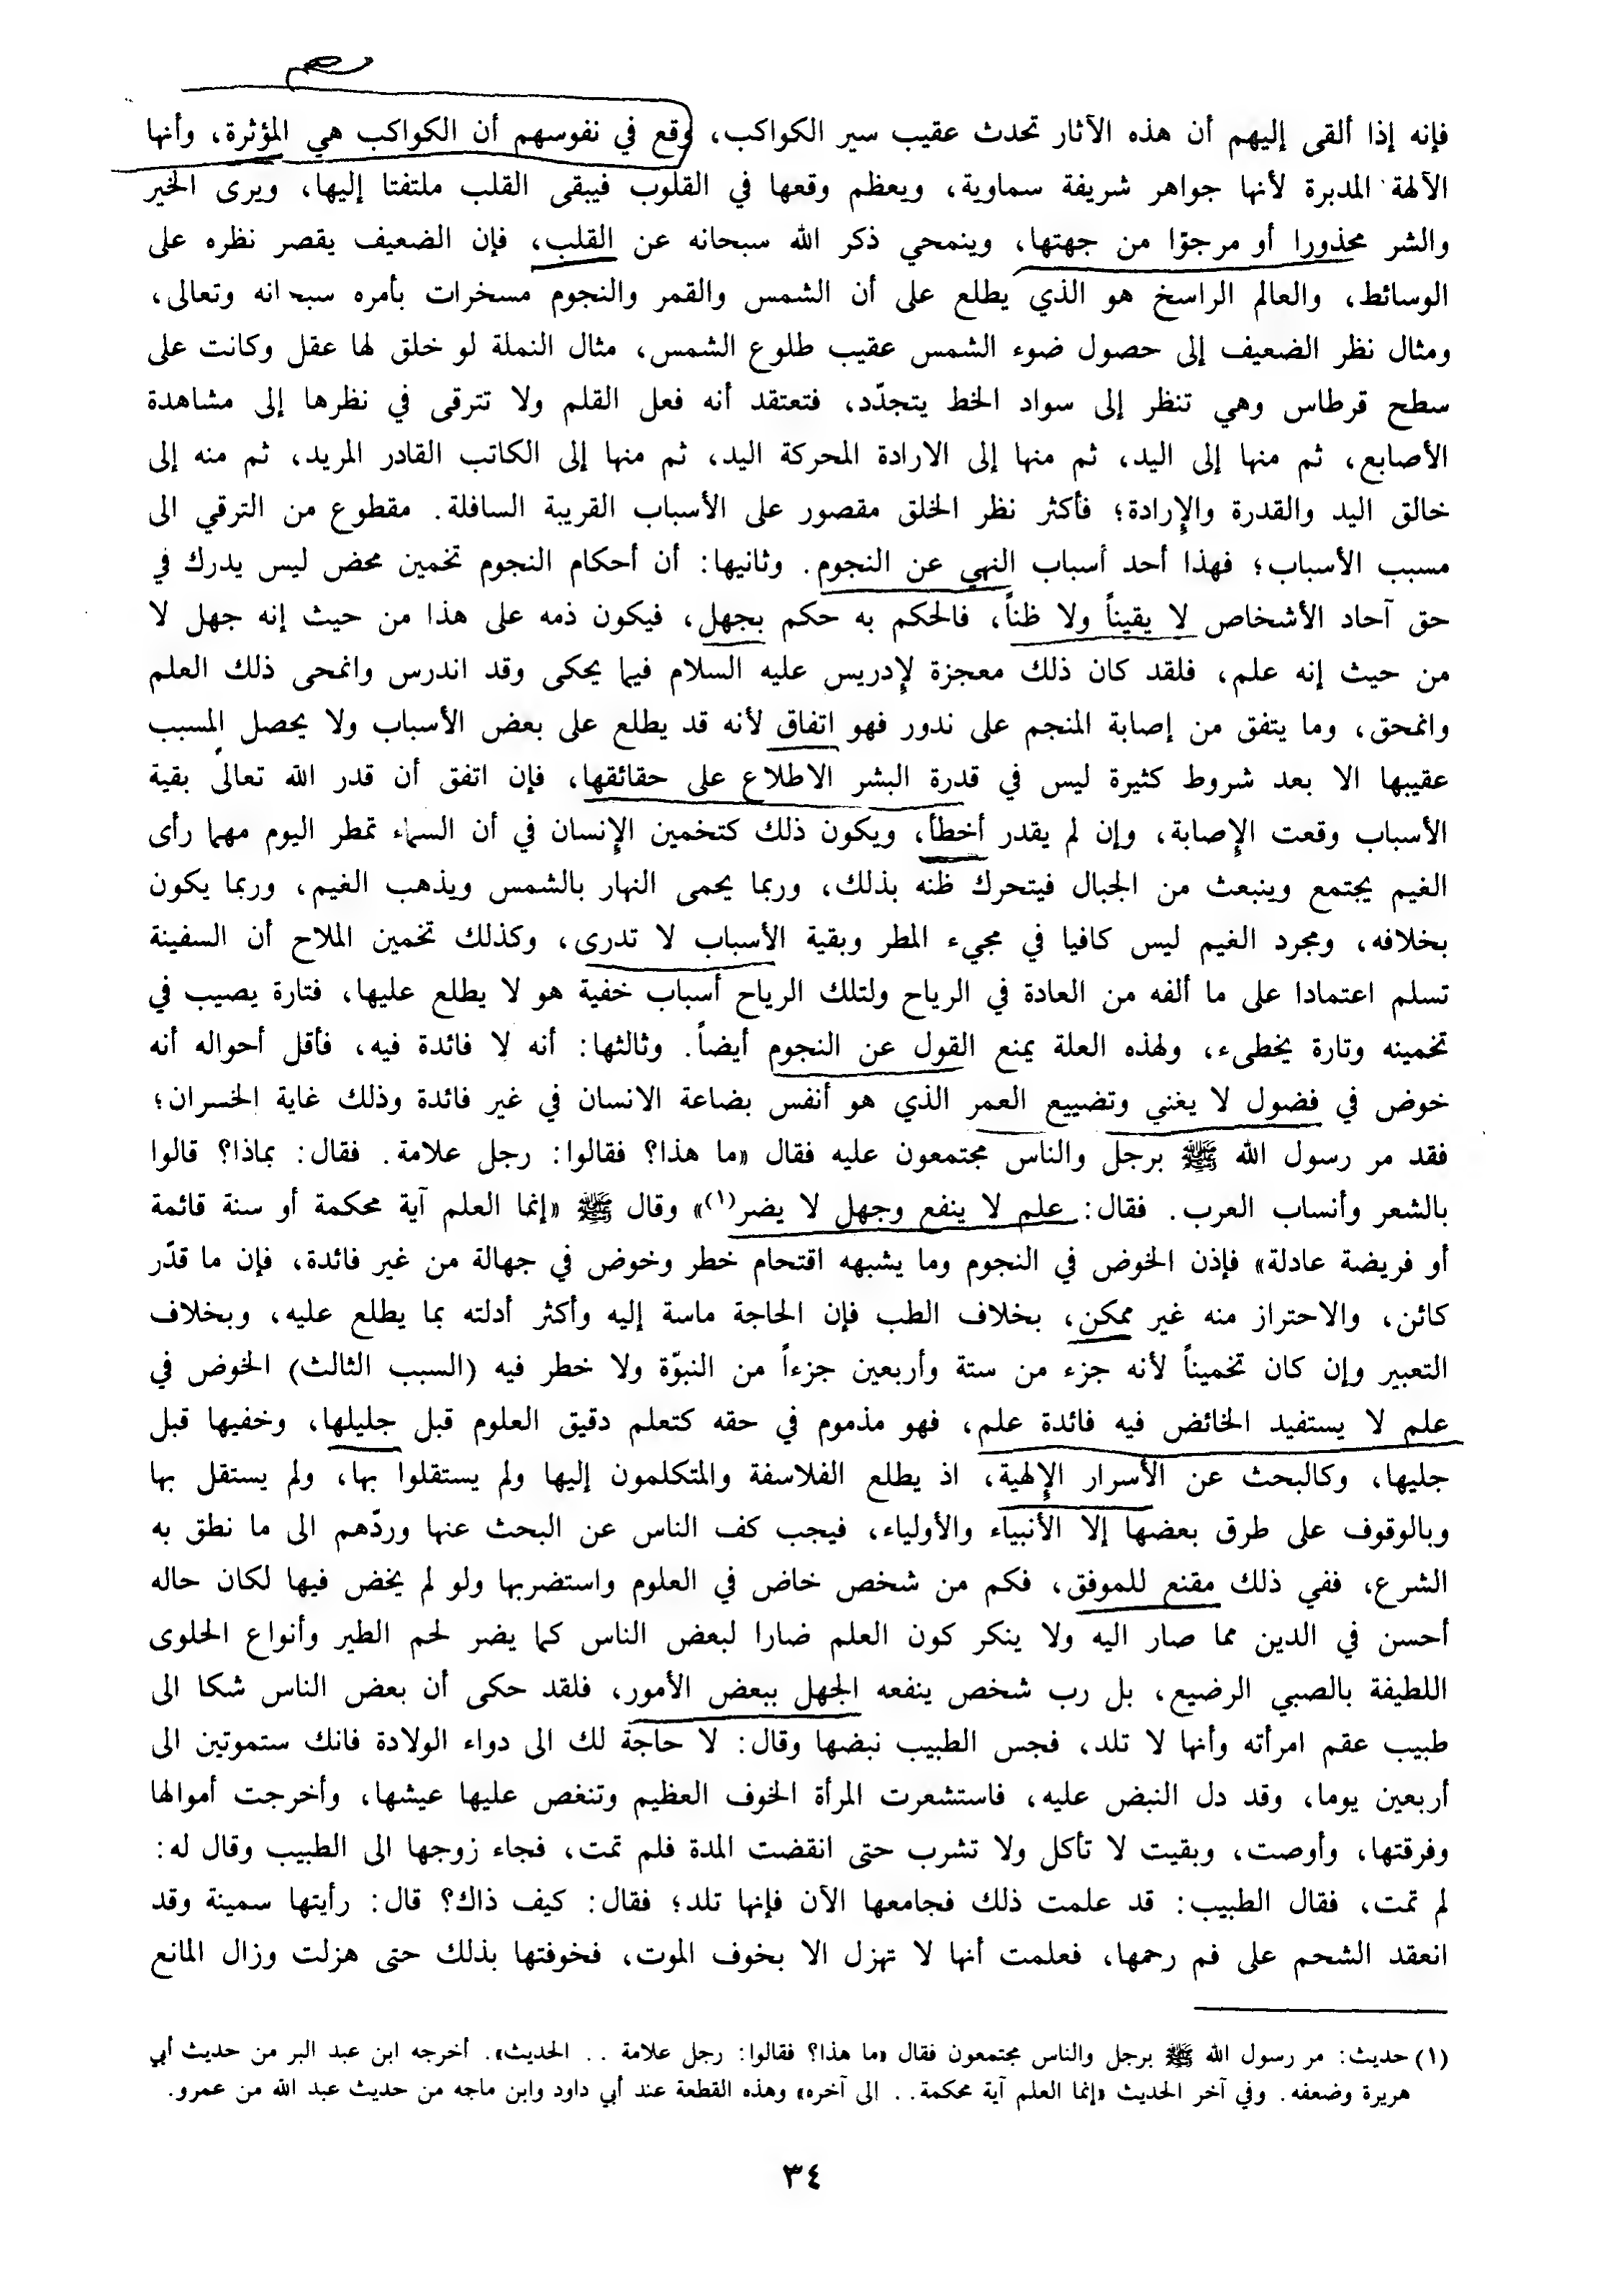 فإنه إذا ألقى إليهم أن هذه الآثار تحدث عقيب سير الكواكب، وقع في نفوسهم أن الكواكب هي المؤثرة، وأنها
الآلهة المدبرة لأنها جواهر شريفة سماوية، ويعظم وقعها في القلوب فيبقى القلب ملتفتا إليها، ويرى الخير
والشر محذورا أو مرجوّا من جهتها، وينمحي ذكر الله سبحانه عن القلب، فإن الضعيف يقصر نظره على
الوسائط، والعالم الراسخ هو الذي يطلع على أن الشمس والقمر والنجوم مسخرات بأمره سبحانه وتعالى،
ومثال نظر الضعيف إلى حصول ضوء الشمس عقيب طلوع الشمس، مثال النملة لو خلق لها عقل وكانت على
سطح قرطاس وهي تنظر إلى سواد الخط يتجدّد، فتعتقد أنه فعل القلم ولا تترقى في نظرها إلى مشاهدة
الأصابع، ثم منها إلى اليد، ثم منها إلى الارادة المحركة اليد، ثم منها إلى الكاتب القادر المريد، ثم منه إلى
خالق اليد والقدرة والإرادة؛ فأكثر نظر الخلق مقصور على الأسباب القريبة السافلة. مقطوع من الترقي الى
مسبب الأسباب؛ فهذا أحد أسباب النهي عن النجوم. وثانيها: أن أحكام النجوم تخمين محض ليس يدرك في
حق آحاد الأشخاص لا يقيناً ولا ظناً، فالحكم به حكم بجهل، فيكون ذمه على هذا من حيث إنه جهل لا
من حيث إنه علم، فلقد كان ذلك معجزة لإدريس عليه السلام فيما يحكى وقد اندرس وانمحى ذلك العلم
وانمحق، وما يتفق من إصابة المنجم على ندور فهو اتفاق لأنه قد يطلع على بعض الأسباب ولا يحصل المسبب
عقيبها الا بعد شروط كثيرة ليس في قدرة البشر الاطلاع على حقائقها، فإن اتفق أن قدر الله تعالى بقية
الأسباب وقعت الإصابة، وإن لم يقدر أخطأ، ويكون ذلك كتخمين الإنسان في أن السماء تمطر اليوم مهما رأى
الغيم يجتمع وينبعث من الجبال فيتحرك ظنه بذلك، وربما يحمى النهار بالشمس ويذهب الغيم، وربما يكون
بخلافه، ومجرد الغيم ليس كافيا في مجيء المطر وبقية الأسباب لا تدرى، وكذلك تخمين الملاح أن السفينة
تسلم اعتمادا على ما ألفه من العادة في الرياح ولتلك الرياح أسباب خفية هو لا يطلع عليها، فتارة يصيب في
تخمينه وتارة يخطىء، ولهذه العلة يمنع القول عن النجوم أيضاً. وثالثها: أنه لا فائدة فيه، فأقل أحواله أنه
خوض في فضول لا يغني وتضييع العمر الذي هو أنفس بضاعة الانسان في غير فائدة وذلك غاية الخسران؛
فقد مر رسول الله ﷺ برجل والناس مجتمعون عليه فقال «ما هذا؟ فقالوا: رجل علامة. فقال: بماذا؟ قالوا
بالشعر وأنساب العرب. فقال: علم لا ينفع وجهل لا يضر(١)» وقال ﷺ «إنما العلم آية محكمة أو سنة قائمة
أو فريضة عادلة» فإذن الخوض في النجوم وما يشبهه اقتحام خطر وخوض في جهالة من غير فائدة، فإن ما قدّر
كائن، والاحتراز منه غير ممكن، بخلاف الطب فإن الحاجة ماسة إليه وأكثر أدلته بما يطلع عليه، وبخلاف
التعبير وإن كان تخميناً لأنه جزء من ستة وأربعين جزءاً من النبوّة ولا خطر فيه (السبب الثالث) الخوض في
علم لا يستفيد الخائض فيه فائدة علم، فهو مذموم في حقه كتعلم دقيق العلوم قبل جليلها، وخفيها قبل
جليها، وكالبحث عن الأسرار الإلهية، اذ يطلع الفلاسفة والمتكلمون إليها ولم يستقلوا بها، ولم يستقل بها
وبالوقوف على طرق بعضها إلا الأنبياء والأولياء، فيجب كف الناس عن البحث عنها وردّهم الى ما نطق به
الشرع، ففي ذلك مقنع للموفق، فكم من شخص خاض في العلوم واستضربها ولو لم يخض فيها لكان حاله
أحسن في الدين مما صار اليه ولا ينكر كون العلم ضارا لبعض الناس كما يضر لحم الطير وأنواع الحلوى
اللطيفة بالصبي الرضيع، بل رب شخص ينفعه الجهل ببعض الأمور، فلقد حكى أن بعض الناس شكا الى
طبيب عقم امرأته وأنها لا تلد، فجس الطبيب نبضها وقال: لا حاجة لك الى دواء الولادة فانك ستموتين الى
أربعين يوما، وقد دل النبض عليه، فاستشعرت المرأة الخوف العظيم وتنغص عليها عيشها، وأخرجت أموالها
وفرقتها، وأوصت، وبقيت لا تأكل ولا تشرب حتى انقضت المدة فلم تمت، فجاء زوجها الى الطبيب وقال له:
لم تمت، فقال الطبيب: قد علمت ذلك فجامعها الآن فإنها تلد؛ فقال: كيف ذاك؟ قال: رأيتها سمينة وقد
انعقد الشحم على فم رحمها، فعلمت أنها لا تهزل الا بخوف الموت، فخوفتها بذلك حتى هزلت وزال المانع
(١) حديث: مر رسول الله ﷺ برجل والناس مجتمعون فقال «ما هذا؟ فقالوا: رجل علامة .. الحديث». أخرجه ابن عبد البر من حديث أبي
هريرة وضعفه. وفي آخر الحديث «إنما العلم آية محكمة.. إلى آخره» وهذه القطعة عند أبي داود وابن ماجه من حديث عبد الله من عمرو.
٣٤